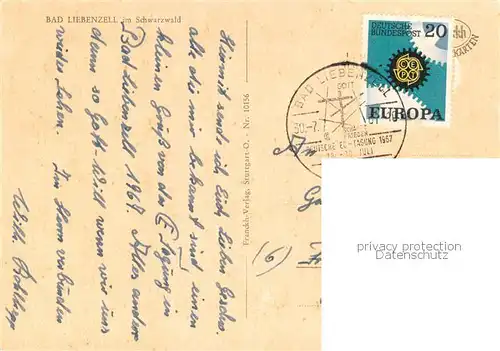 BAD LIEBENZELL im Schwarzwald
Hiermit sende ich Euch lieben Geschw.
alle die mir bekannt sind einen
kleinen Gruß von der EC Tagung in
Bad Liebenzell 1967. Alles andere
dann so Gott will wenn wir uns
wieder sehen. Im Herrn verbunden
Wilh.
Franckh-Verlag, Stuttgart-O. - Nr. 10156
DEUTSCHE
BUNDESPOST
20
CEPT
EUROPA
BAD LIEBENZELL
GOTT
DEUTSCHE EC-TAGUNG 1967
JULI
An
(6)
KARTEN
privacy protection
Datenschutz